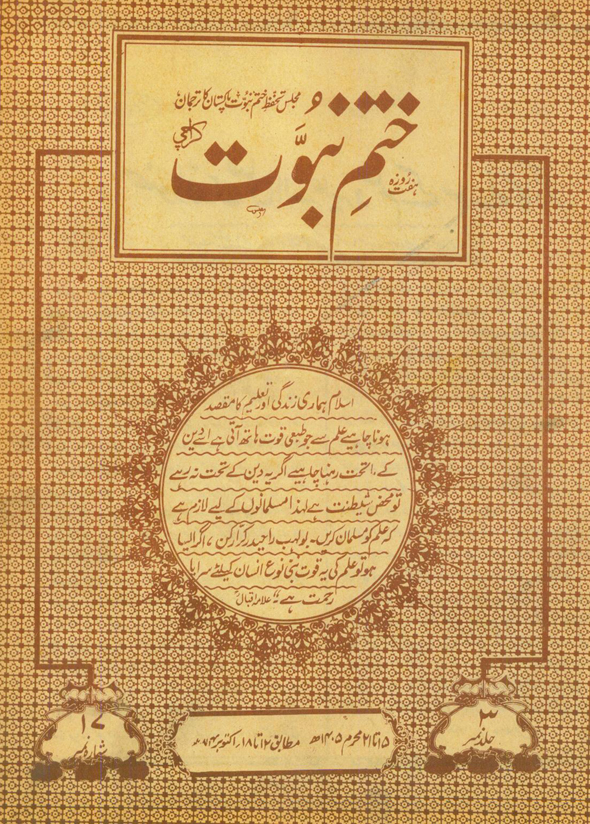 مجلس تحفظ ختم نبوت پاکستان کا ترجمان
ہفت روزہ
ختمِ نبوّت
کراچی
اسلام ہماری زندگی اور تعلیم کا مقصد
ہونا چاہیے علم سے جو طبعی قوت ہاتھ آتی ہے اسے دین
کے ماتحت رہنا چاہیے اگر یہ دین کے تحت نہ رہے
تو محض شیطنت ہے لہٰذا مسلمانوں کے لیے لازم ہے
کہ علم کو مسلمان کریں۔ بولہب را حیدر کرّار کن ، اگر ایسا
ہو تو علم کی یہ قوت بنی نوع انسان کیلئے سراپا
رحمت ہے" علامہ اقبال
جلد نمبر ۳
شمارہ نمبر ۱۷
۱۵ تا ۲۱ محرم ۱۴۰۵ھ مطابق ۱۲ تا ۱۸ اکتوبر ۸۴ء